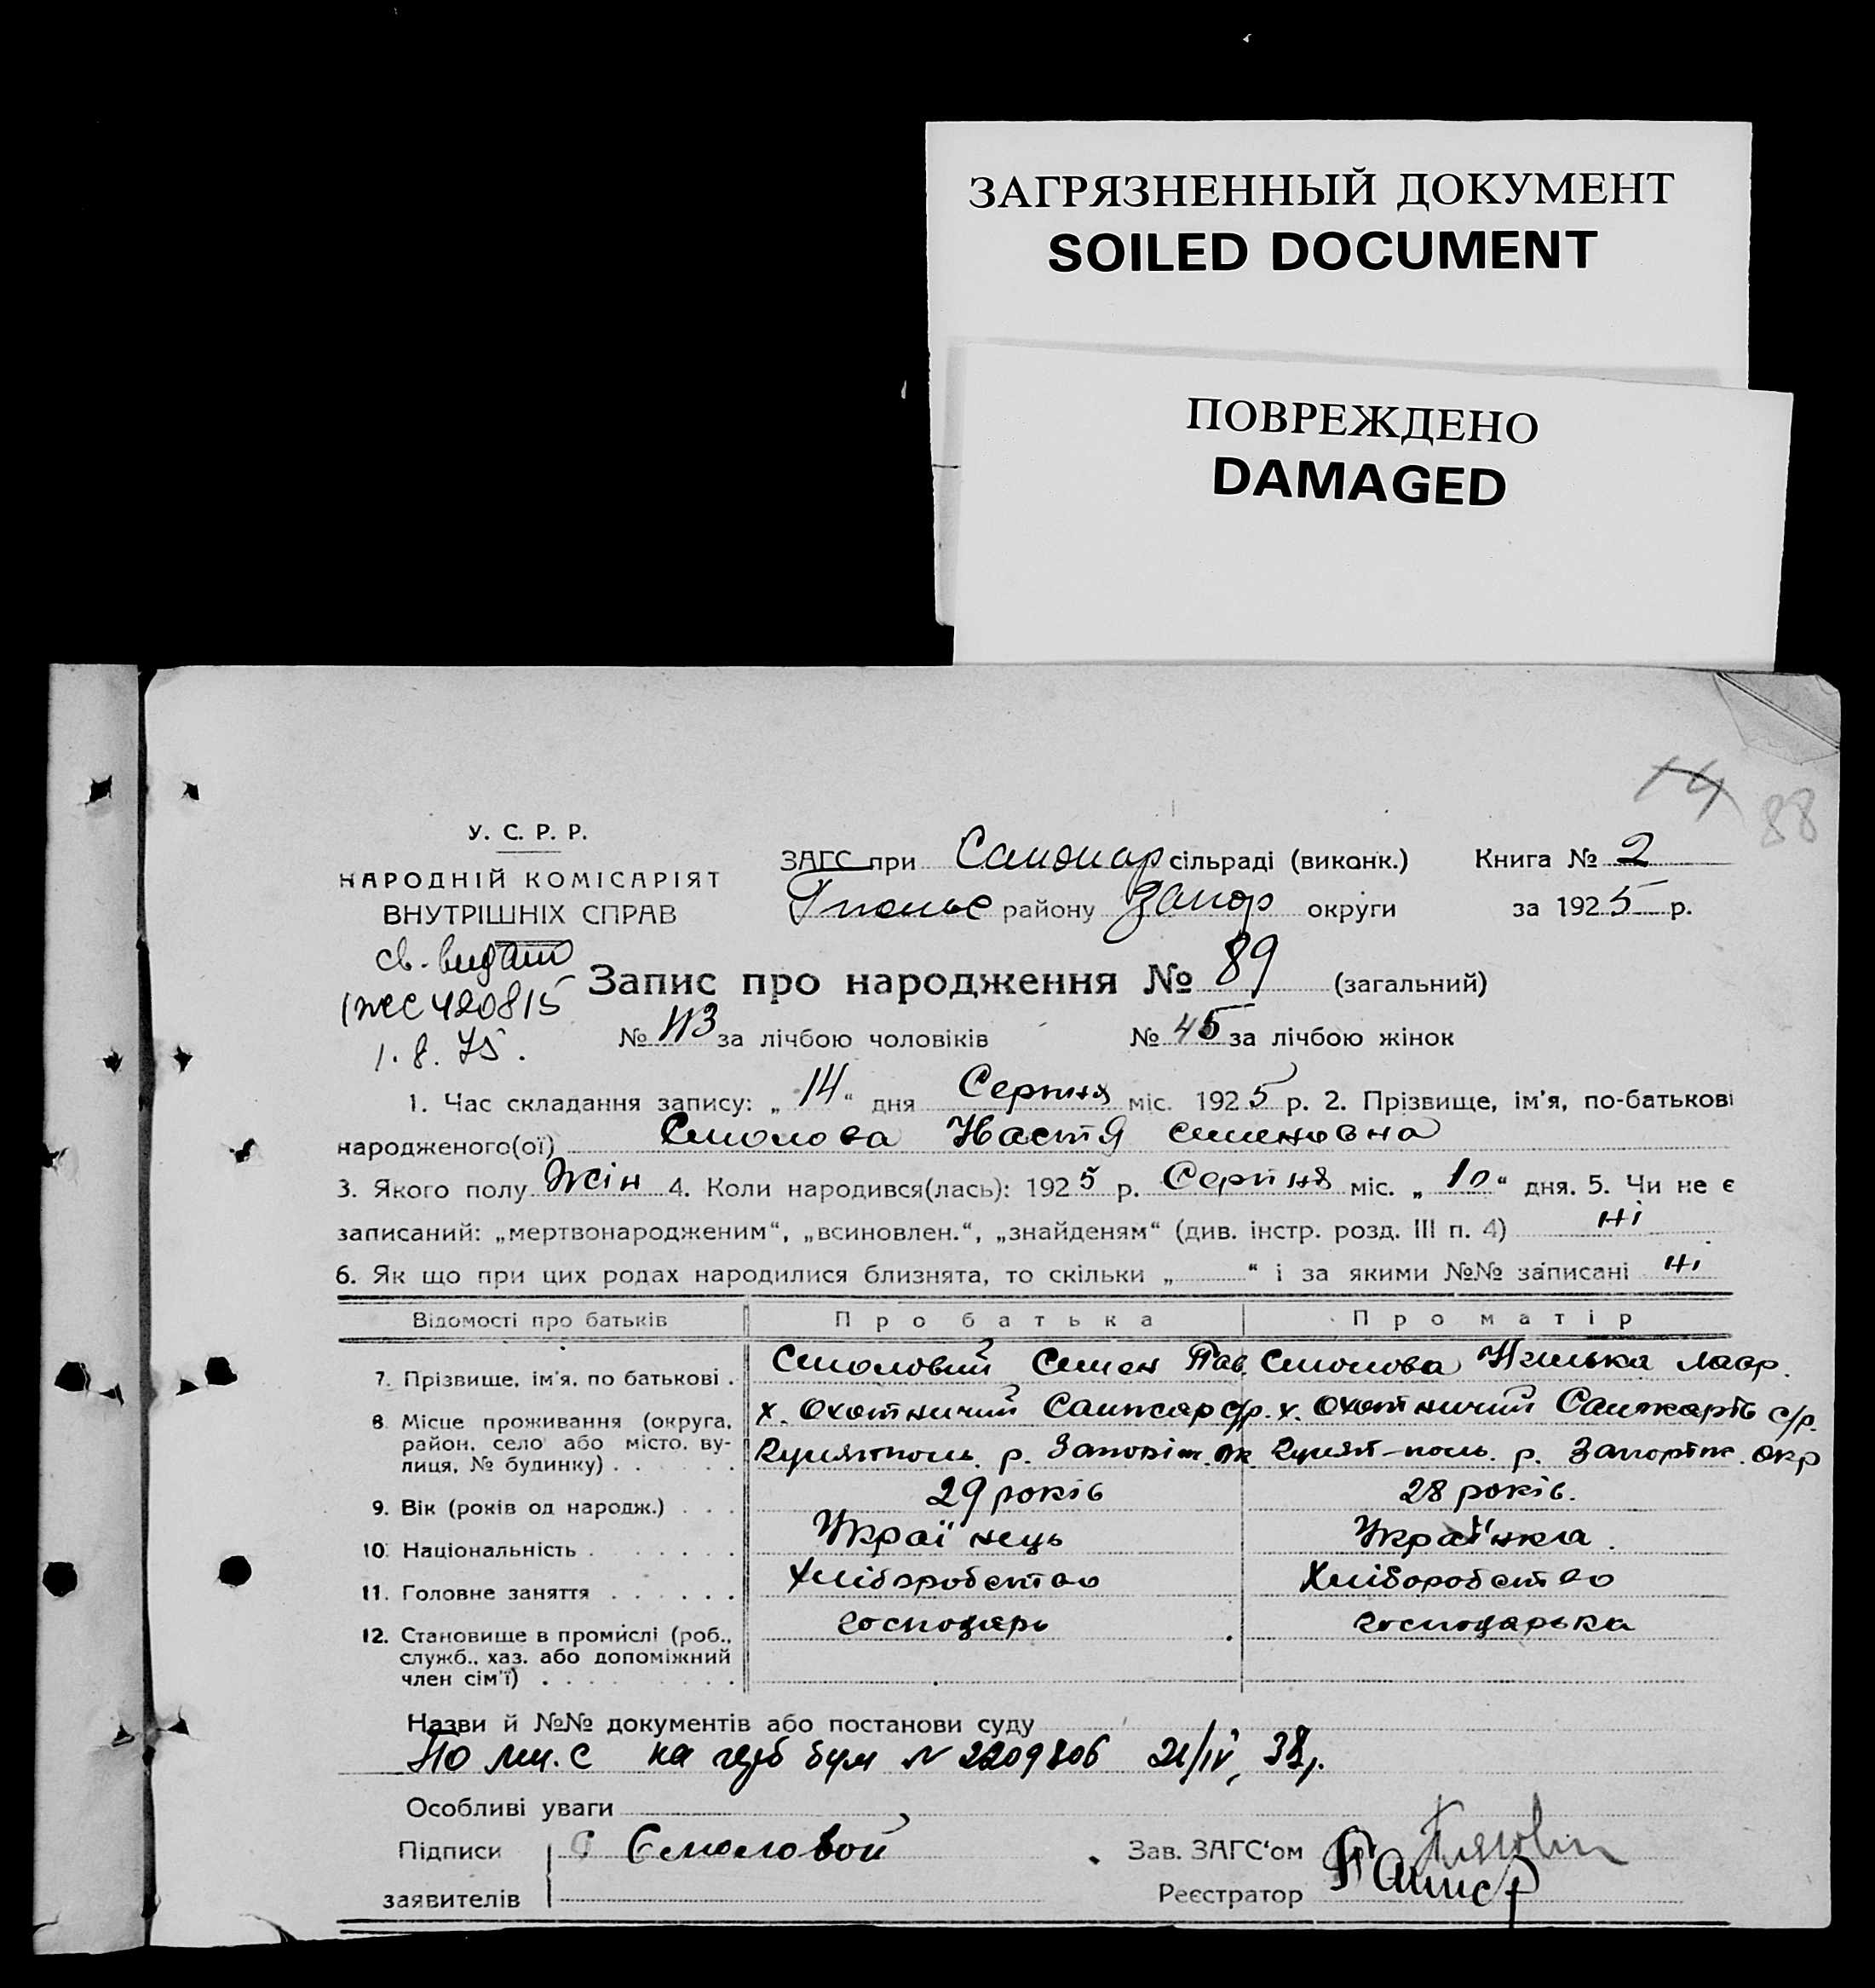 ЗАГРЯЗНЕННЫЙ ДОКУМЕНТ
SOILED DOCUMENT
ПОВРЕЖДЕНО
DAMAGED
14 88
У. С. Р. Р.
НАРОДНІЙ КОМІСАРІЯТ
ВНУТРІШНІХ СПРАВ
ЗАГС при Санжар сільраді (виконк.) Книга № 2
району Запор округи за 1925 р.
св. видано
420815
1.8.75.
Запис про народження № 89 (загальний)
№ 43 за лічбою чоловіків № 45 за лічбою жінок
1. Час складання запису: „14“ дня Серпня міс. 1925 р. 2. Прізвище, ім'я, по-батькові
народженого(ої) Смолова Настя Семеновна
3. Якого полу Жін 4. Коли народився(лась): 1925 р. Серпня міс. „10“ дня. 5. Чи не є
записаний: „мертвонародженим“, „всиновлен.“, „знайденям“ (див. інстр. розд. III п. 4) ні
6. Як що при цих родах народилися близнята, то скільки „ “ і за якими №№ записані ні
Відомості про батьків Про батька Про матір
7. Прізвище, ім'я, по батькові . Смоловий Семен Пав. Смолова Лавр.
8. Місце проживання (округа, район, село або місто, вулиця, № будинку) . . . х. Охотничий Санжар с/р. х. Охотничий Санжарів с/р.
р. р. Запоріж. окр
9. Вік (років од народж.) . . . 29 років 28 років.
10. Національність . . . . . . Українець Українка.
11. Головне заняття . . . . . . Хліборобство Хліборобство
12. Становище в промислі (роб., служб., хаз. або допоміжний член сім'ї) . . . господарь господарька
Назви й №№ документів або постанови суду
на герб бум № 2209806 21/IV, 38р.
Особливі уваги
Підписи Смоловой Зав. ЗАГС'ом
заявителів Реєстратор